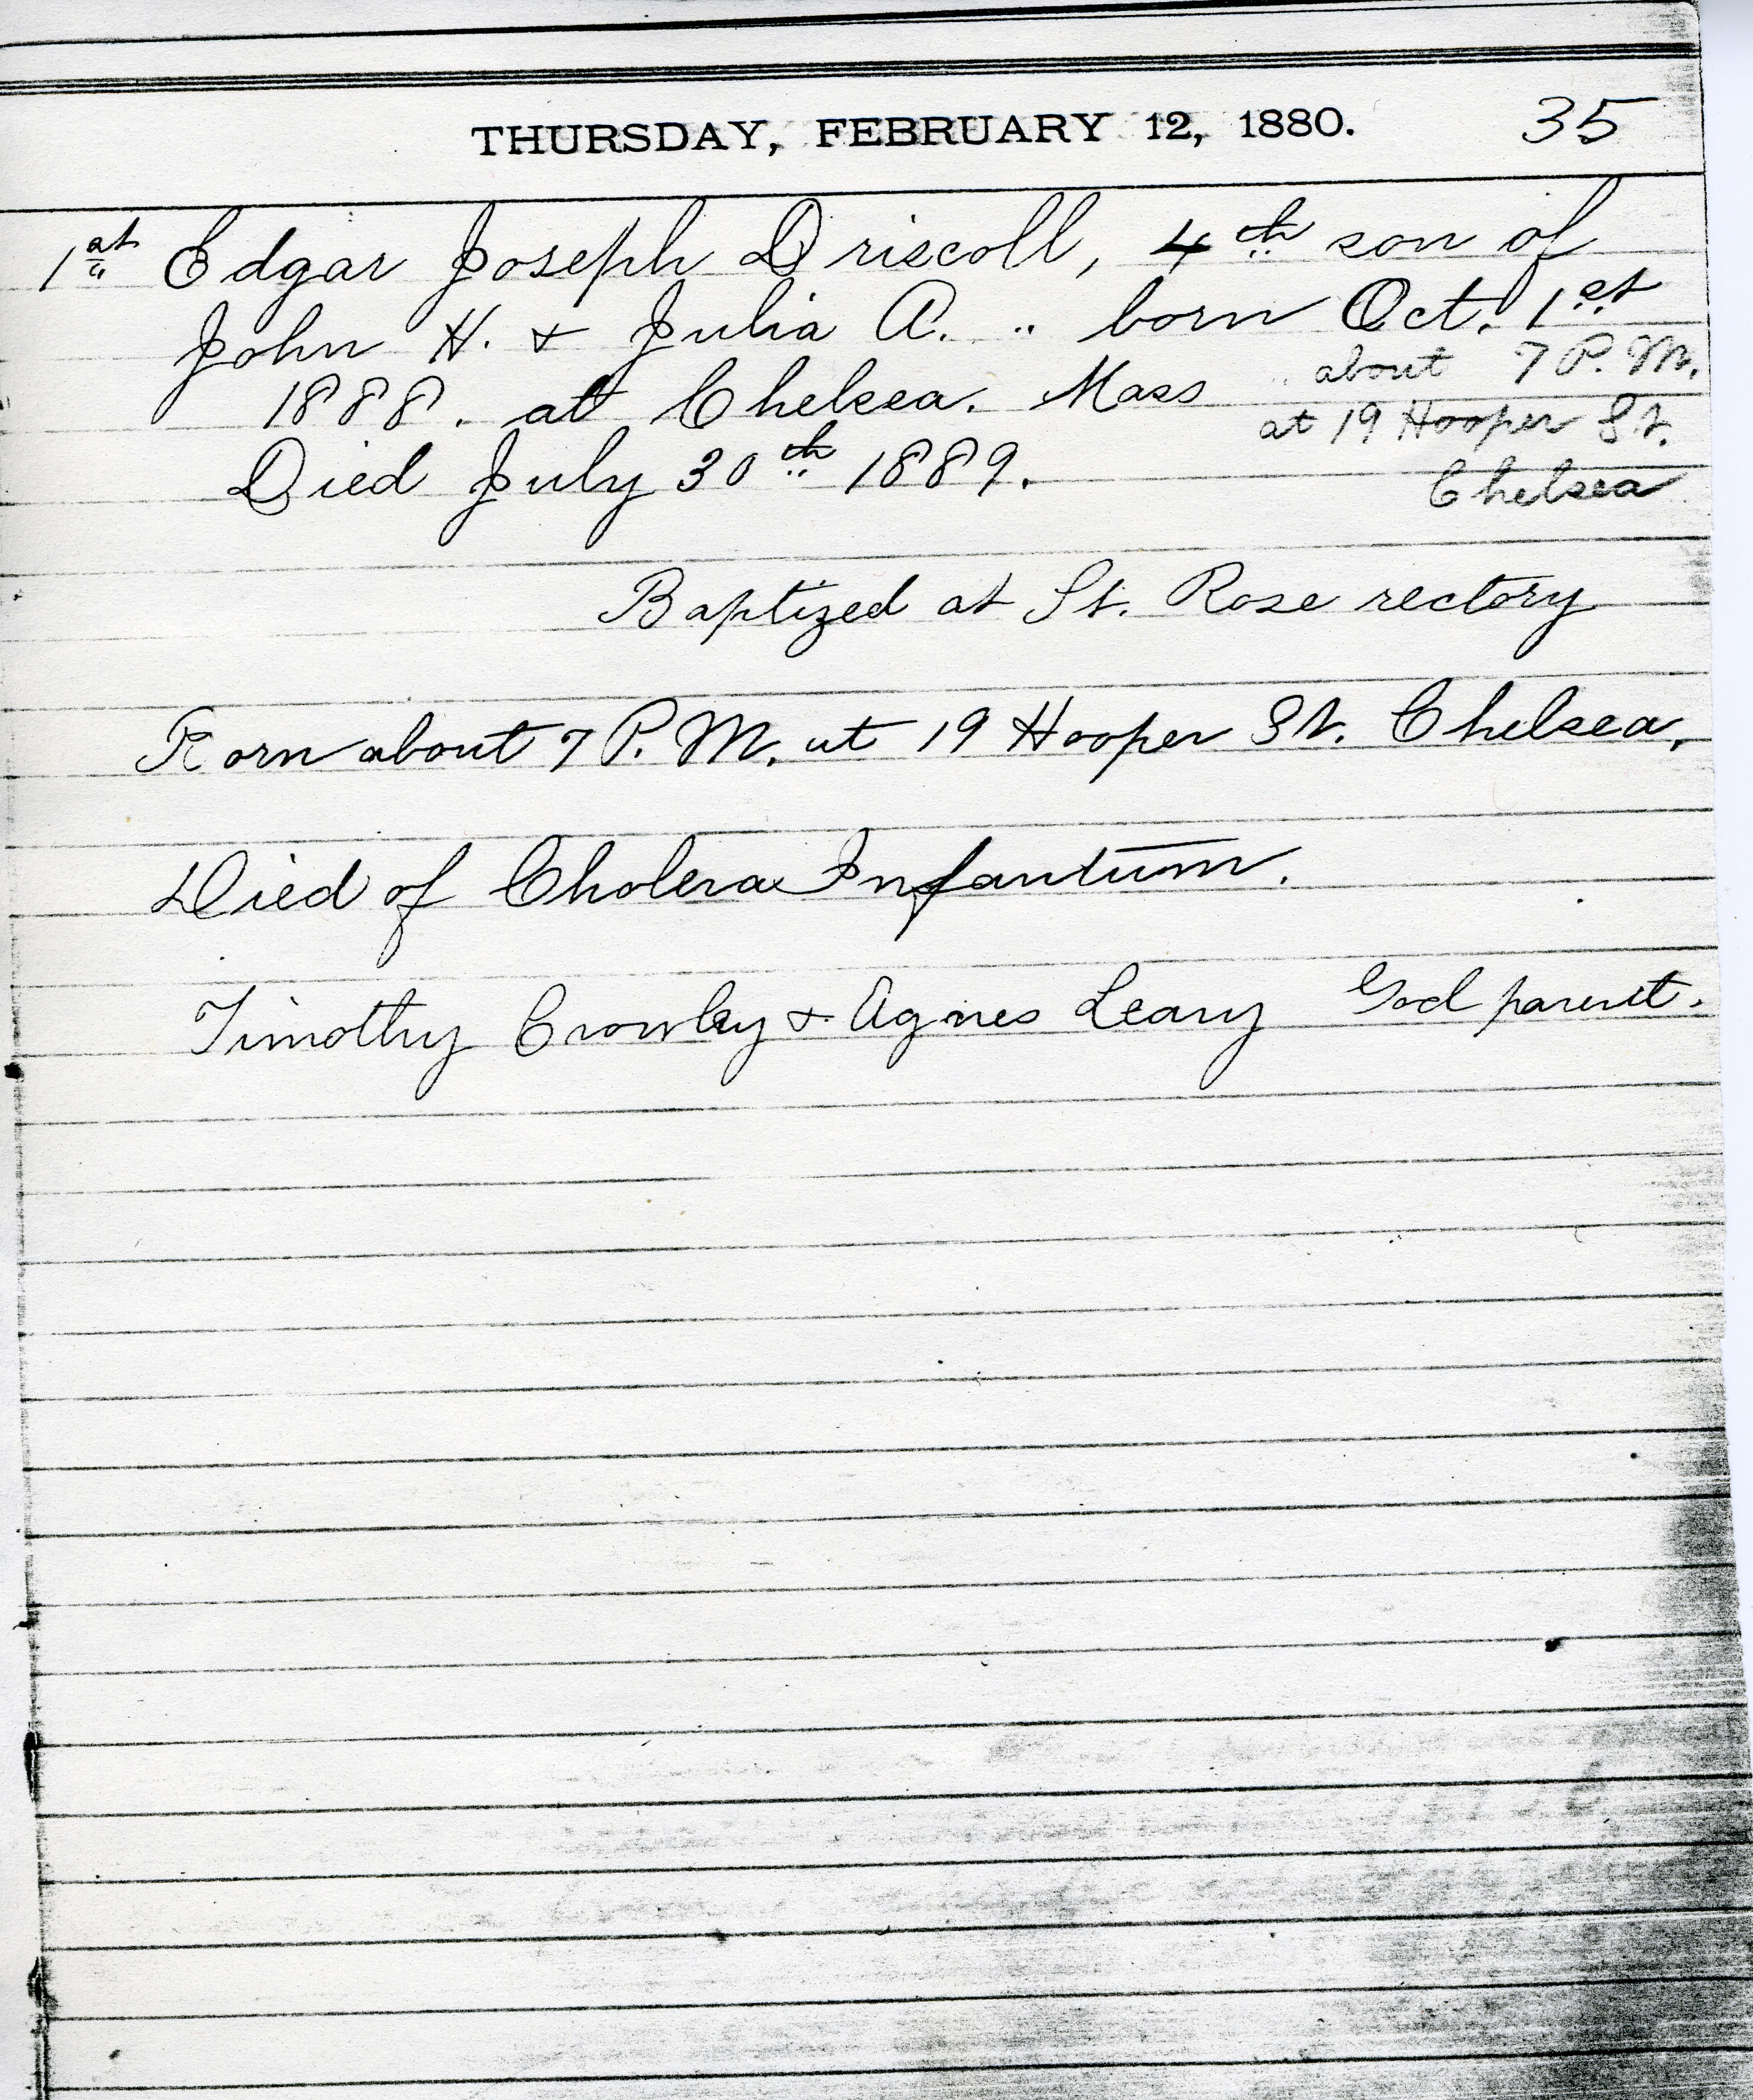 THURSDAY, FEBRUARY 12, 1880. 35
1st Edgar Joseph Driscoll, 4th son of
John H. & Julia A. " born Oct. 1st
1888. at Chelsea. Mass about 7 P.M.
at 19 Hooper St.
Died July 30th 1889. Chelsea
Baptized at St. Rose rectory
Born about 7 P.M. at 19 Hooper St. Chelsea.
Died of Cholera Infantum.
Timothy Crowley & Agnes Leary God parent.